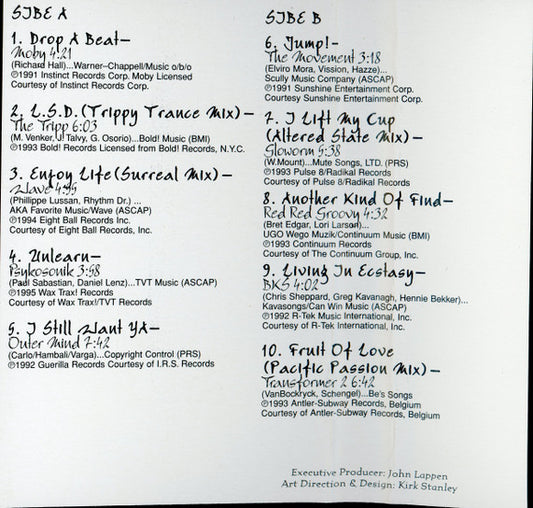 SIDE A
1. Drop A Beat—
Moby 4:21
(Richard Hall)...Warner–Chappell/Music o/b/o
℗1991 Instinct Records Corp. Moby Licensed
Courtesy of Instinct Records Corp.
2. L.S.D. (Trippy Trance Mix)—
The Tripp 6:03
(M. Venker, J. Talvy, G. Osorio)...Bold! Music (BMI)
℗1993 Bold! Records Licensed from Bold! Records, N.Y.C.
3. Enjoy Life (Surreal Mix)—
Wave 4:55
(Phillippe Lussan, Rhythm Dr.) ...
AKA Favorite Music/Wave (ASCAP)
℗1994 Eight Ball Records Inc.
Courtesy of Eight Ball Records, Inc.
4. Unlearn—
Psykosonik 3:58
(Paul Sabastian, Daniel Lenz)...TVT Music (ASCAP)
℗1995 Wax Trax! Records
Courtesy of Wax Trax!/TVT Records
5. I Still Want YA—
Outer Mind 7:42
(Carlo/Hambali/Varga)...Copyright Control (PRS)
℗1992 Guerilla Records Courtesy of I.R.S. Records
SIDE B
6. Jump!—
The Movement 3:18
(Elviro Mora, Vission, Hazze)...
Scully Music Company (ASCAP)
℗1991 Sunshine Entertainment Corp.
Courtesy Sunshine Entertainment Corp.
7. I Lift My Cup
(Altered State Mix)—
Gloworm 5:38
(W.Mount)...Mute Songs, LTD. (PRS)
℗1993 Pulse 8/Radikal Records
Courtesy of Pulse 8/Radikal Records
8. Another Kind Of Find—
Red Red Groovy 4:32
(Bret Edgar, Lori Larson)...
UGO Wego Muzik/Continuum Music (BMI)
℗1993 Continuum Records
Courtesy of The Continuum Group, Inc.
9. Living In Ecstasy—
BKS 4:02
(Chris Sheppard, Greg Kavanagh, Hennie Bekker)...
Kavasongs/Can Win Music (ASCAP)
℗1992 R-Tek Music International, Inc.
Courtesy of R-Tek International, Inc.
10. Fruit Of Love
(Pacific Passion Mix)—
Transformer 2 6:42
(VanBockryck, Schengel)...Be's Songs
℗1993 Antler-Subway Records, Belgium
Courtesy of Antler-Subway Records, Belgium
Executive Producer: John Lappen
Art Direction & Design: Kirk Stanley